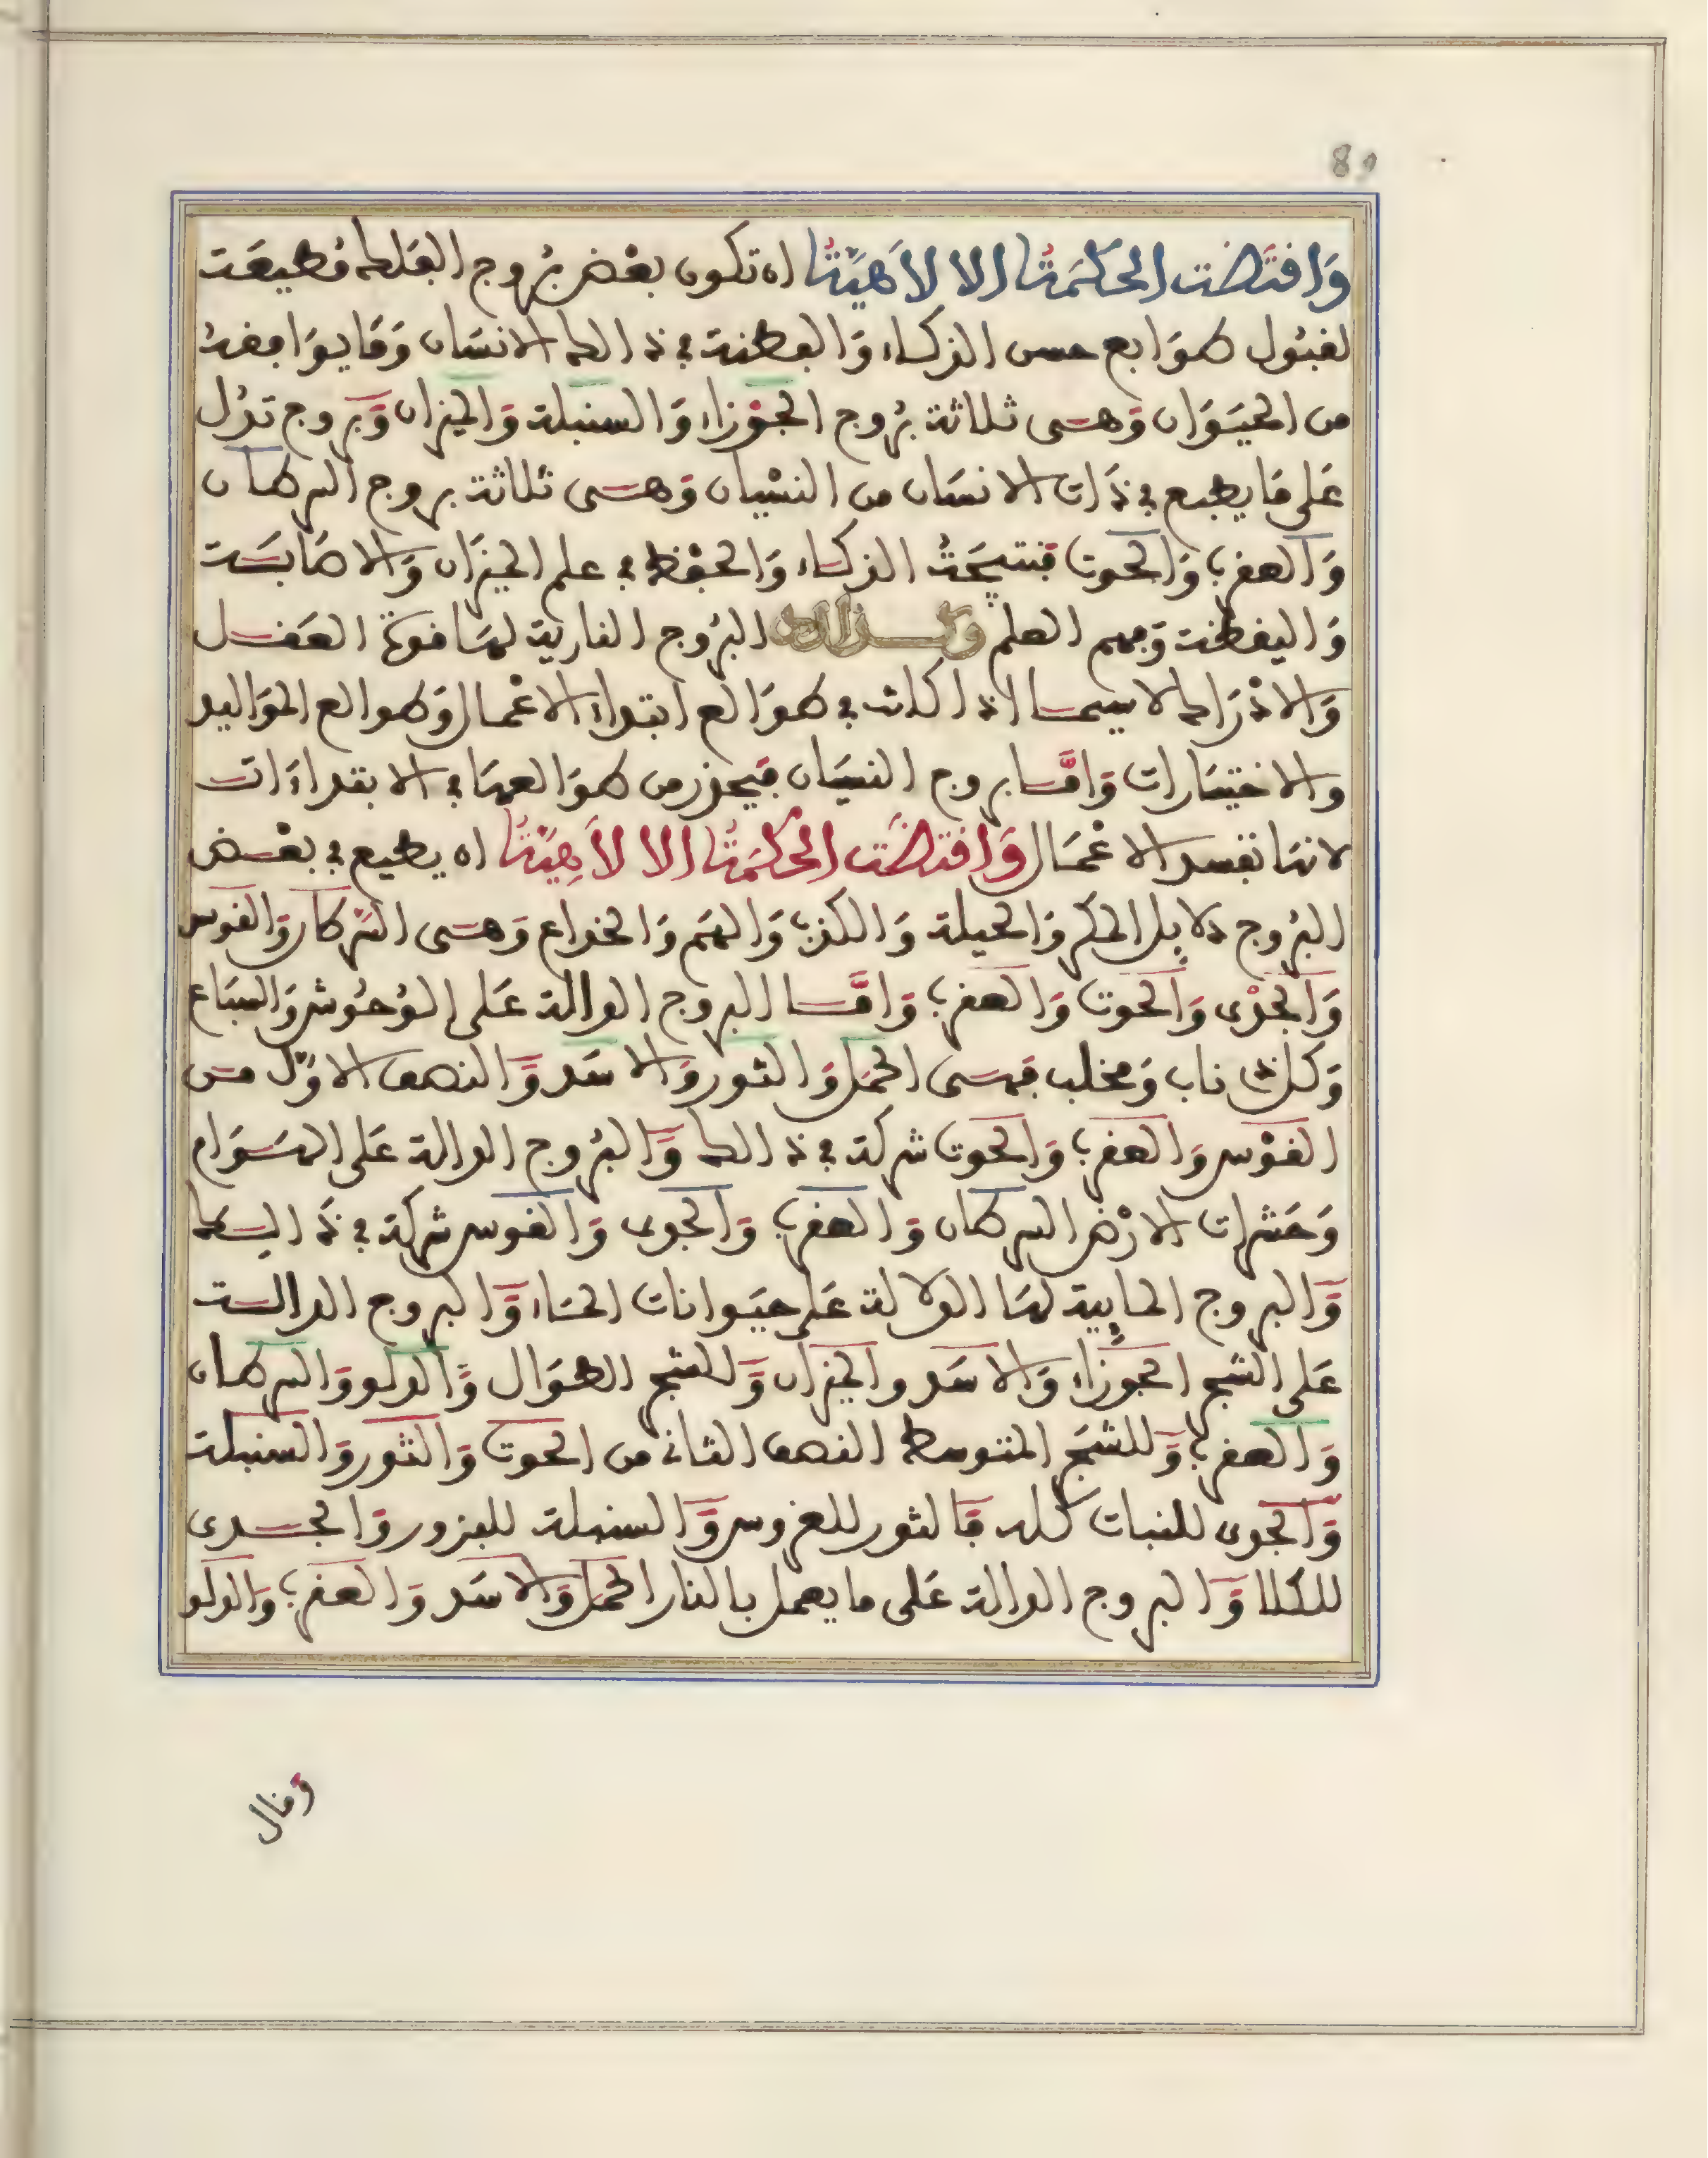 89
وَاقتَضت الحَكمَتُ الا لاَهيَّتُ ان تكون بعْض بُروج الفَلك مُطيعَت
لقبُول طوَابع حسن الذكاء وَالفطنة في ذالك الانسَان وَمَا يوَافقهُ
من الحيَوَان وَهى ثلاثة بُروج الجوْزاء وَالسنبلة وَالميزان وَبروج تدُل
عَلى مَا يطبع في ذَات الانسَان من النسْيان وَهى ثلاثة بروج السرطان
وَالعقرب وَالحوت فنتيجَتُ الذكاء وَالحفْظ في علم الميزَان وَالاصَابَت
وَاليقظت وَفهم العلم وَكذالك البُروج النارية لهَا قوة العَقل
وَالاذرَاك لاسيما اذا كانت في طوَالع ابتداء الاعْمال وَطوالع المَوَاليد
والاختيَارات وَامَّا بروج النسيَان فيحذر من طوَالعهَا في الابتداءَات
لانهَا تفسد الاعْمَال وَاقتضَت الحَكمَتُ الا لاَهِيَّتُ ان يطيع في بعْض
البُروج دلايل المكر وَالحيلة وَالكذب وَالهَم وَالخداع وَهى السّرطان وَالقوس
وَالجَدْى وَالحوت وَالعقرب وَامَّا البروج الدالة عَلى الوُحُوش وَالسبَاع
وَكل ذى ناب وَمخلب فهى الحمَل وَالثور وَالاسَد وَالنصف الاوَّل من
القوْس وَالعقرب وَالحوت شركة في ذالك وَالبُروج الدالة عَلى الهَوَام
وَحَشرات الارْض السرطان وَالعقرب وَالجدى وَالقوس شركة في ذَالك
وَالبروج المايِية لهَا الدلالة عَلى حيَوانات المَاء وَالبروج الدالت
عَلى الشجر الجوزَاء وَالاسَد والميزان وَللشجر الطوَال وَالدلو وَالسرطان
وَالعقرب وَللشجَر المتوسط النصف الثانى من الحوت وَالثور وَالسنبلة
وَالجدى للنبات كله فَالثور للغروس وَالسنبلة للبزور وَالجدى
للكلا وَالبروج الدالة عَلى ما يعمل بالنار الحمَل وَالاسَد وَالعقرب وَالدلو
وقال